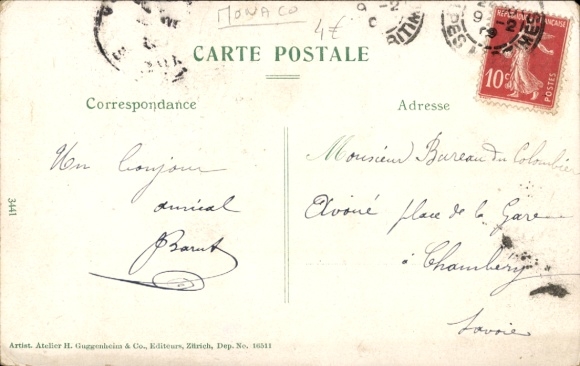 MONACO
4€
CARTE POSTALE
RÉPUBLIQUE FRANÇAISE
10c
POSTES
Correspondance
Adresse
Un bonjour
amical
Barut
Monsieur Bureau du Colombier
Avoué place de la Gare
à Chambéry
Savoie
3441
Artist. Atelier H. Guggenheim & Co., Editeurs, Zürich, Dep. No. 16511